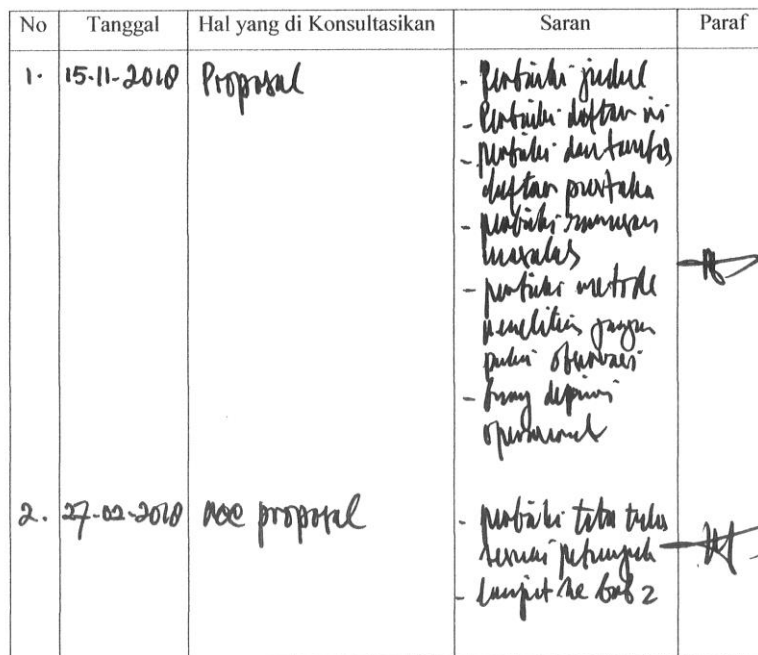 No Tanggal Hal yang di Konsultasikan Saran Paraf
1. 15-11-2018 Proposal - perbaiki judul
- Perbaiki daftar isi
- perbaiki dan tambah
daftar pustaka
- perbaiki rumusan
masalah
- perbaiki metode
penelitian jangan
pakai observasi
- operasional
2. 27-02-2018 acc proposal - perbaiki tata tulis
sesuai petunjuk
- lanjut ke bab 2